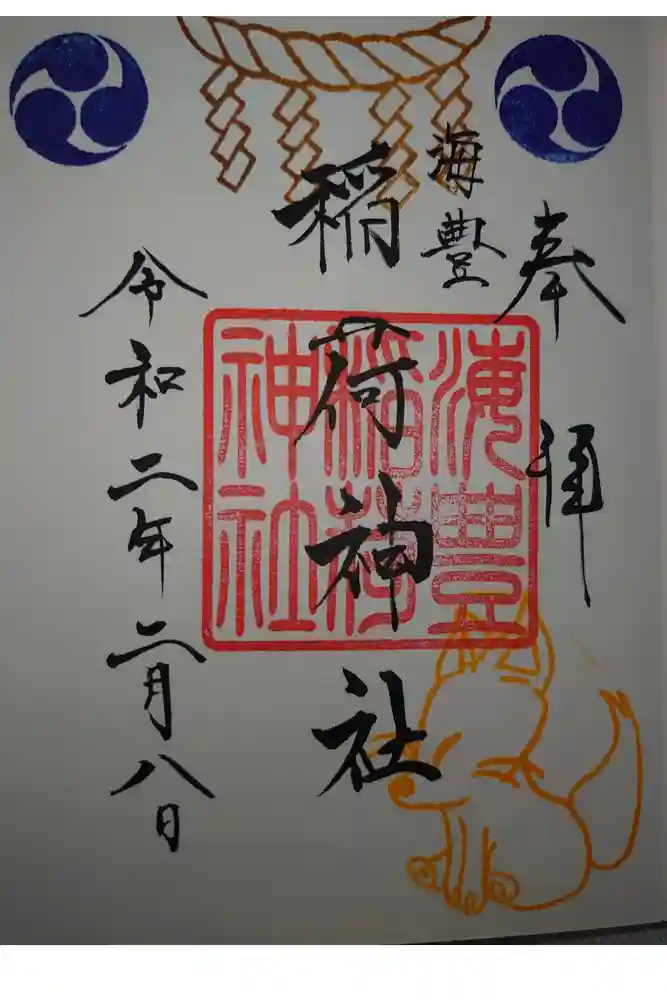 奉拝
海豊
稲荷神社
海豊稲荷神社
令和二年二月八日